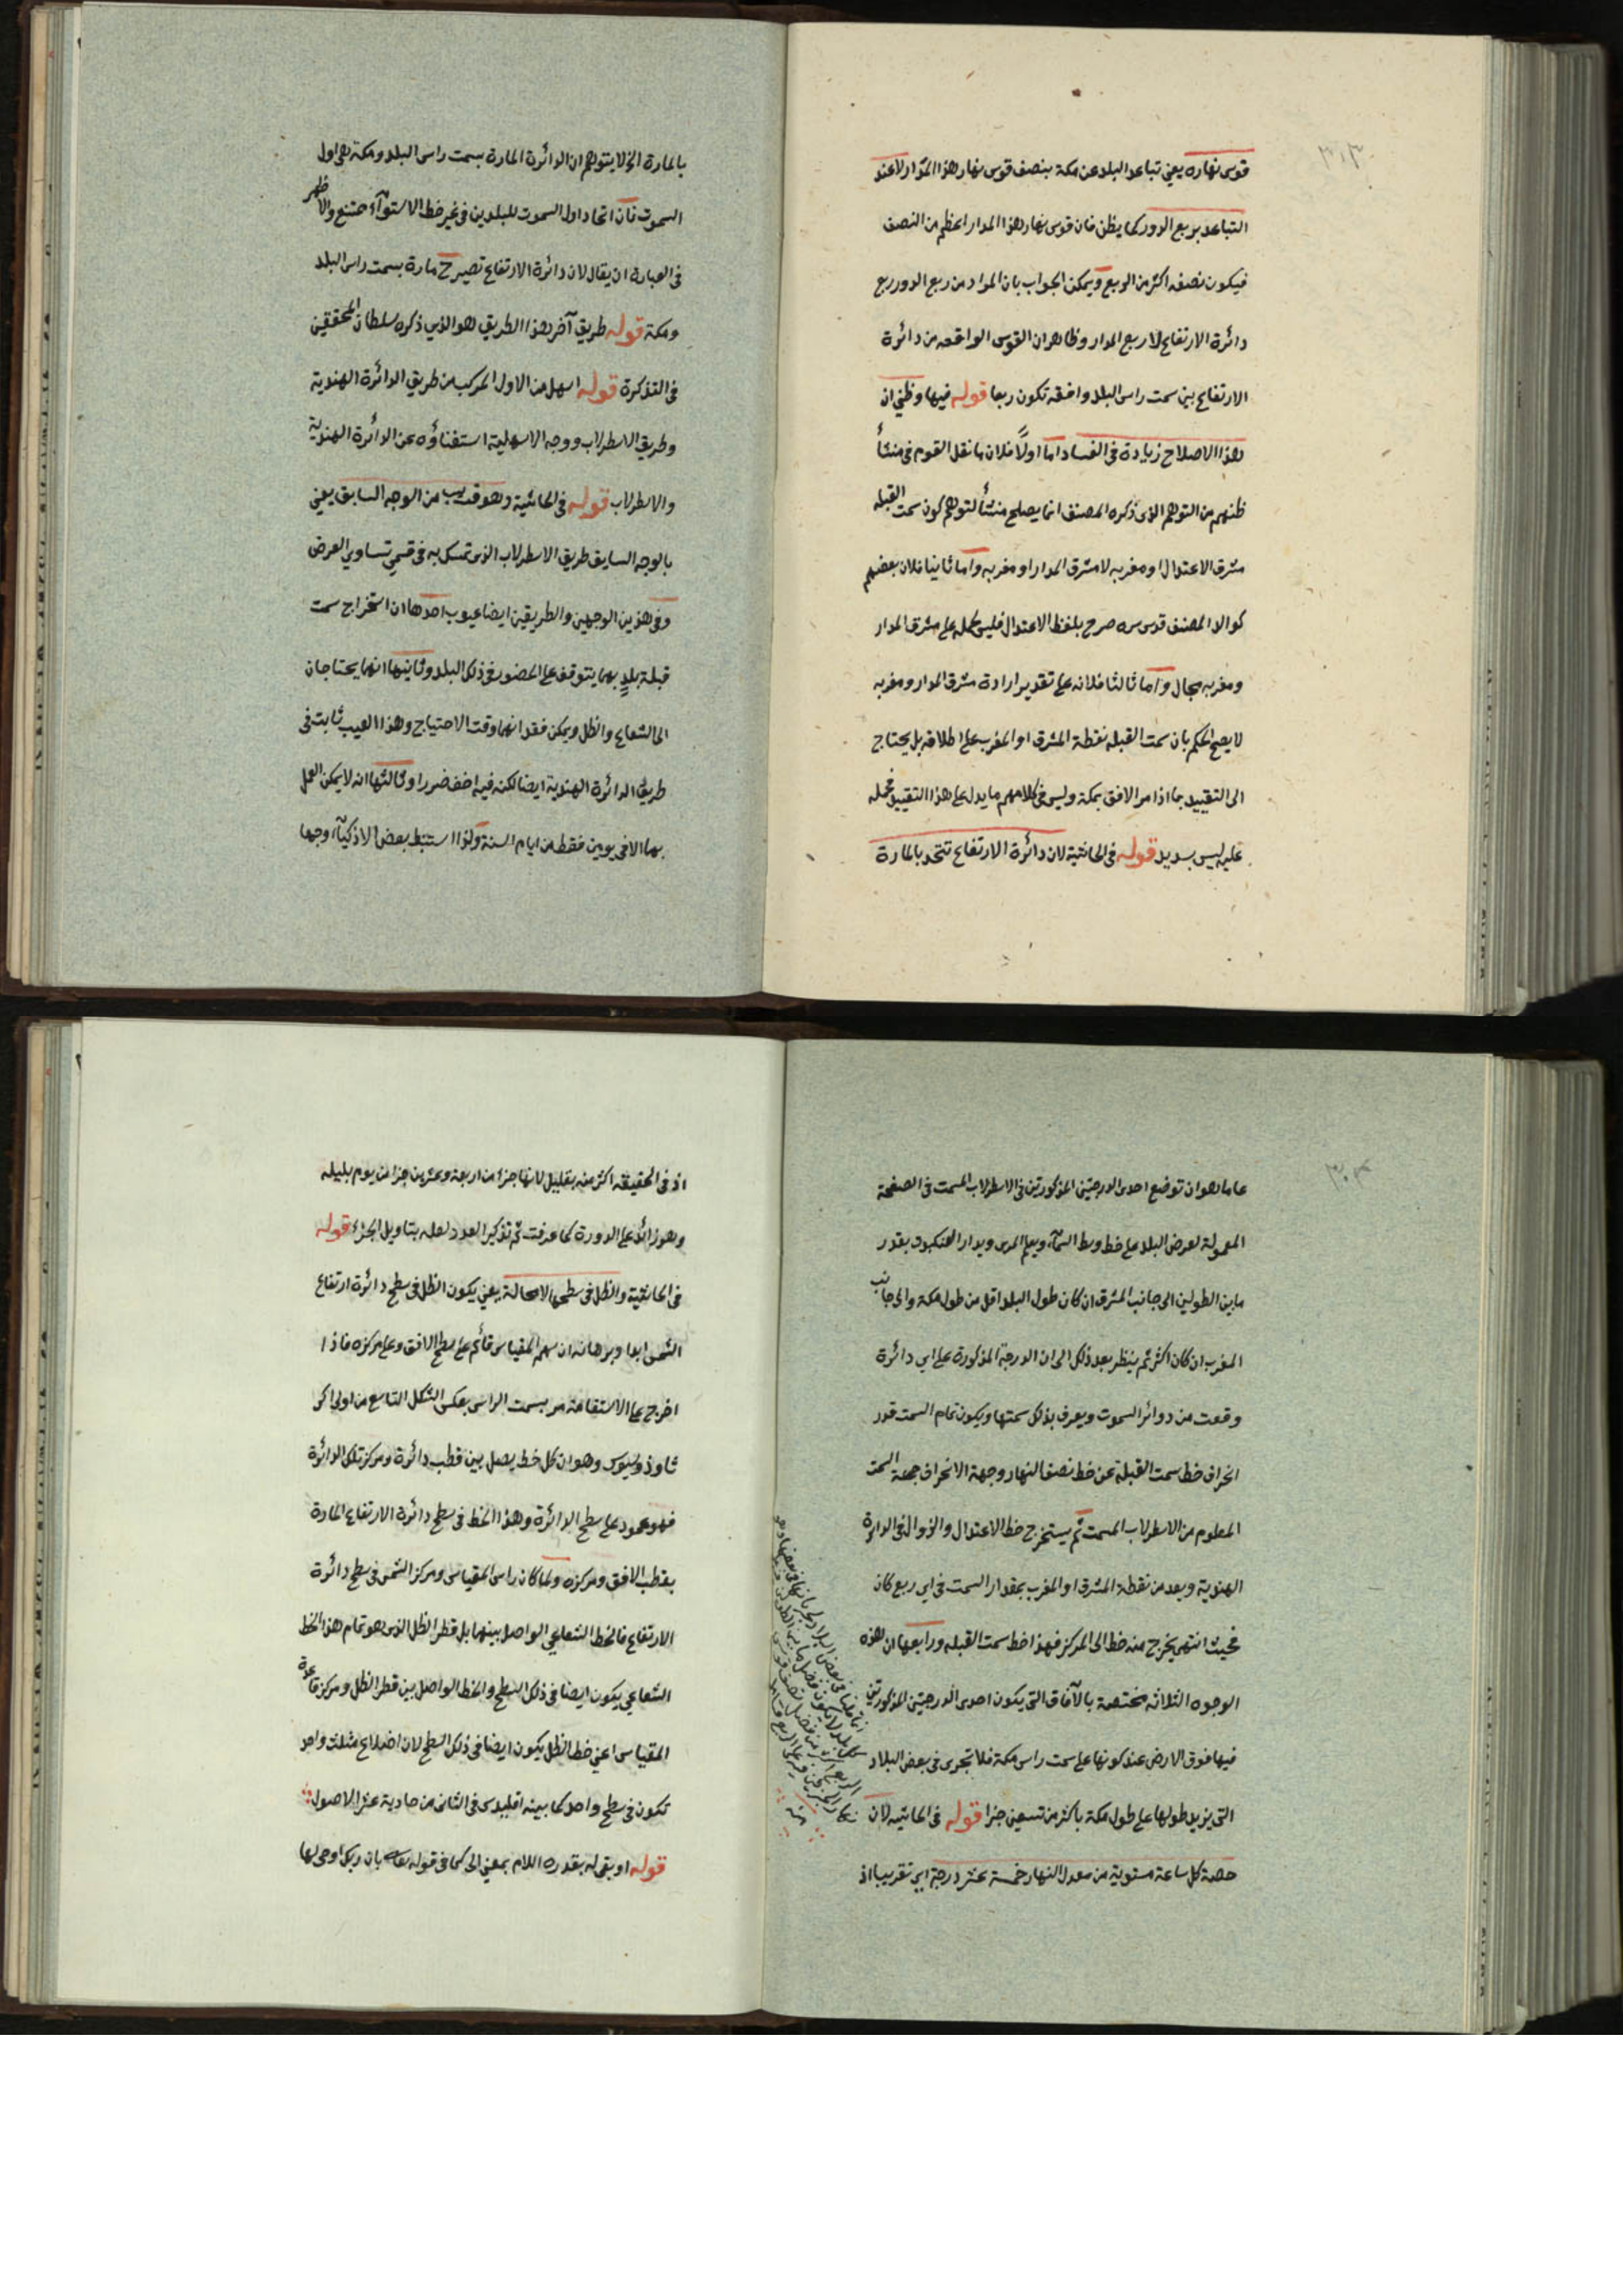 قوس نهاره يعني تباعد البلد عن مكة بنصف قوس نهار هذا المدار لا عند
التباعد بربع الدور كما يظن فان قوس نهار هذا المدار اعظم من النصف
فيكون نصفه اكثر من الربع ويمكن الجواب بان المراد من ربع الدور ربع
دائرة الارتفاع لا ربع المدار وظاهر ان القوس الواقعه من دائرة
الارتفاع بين سمت راس البلد وافقه تكون ربعا قوله فيها وظني ان
هذا الاصلاح زيادة في الفساد اما اولًا فلان ما نقل القوم في منشأ
ظنهم من التوهم الذي ذكره المصنف انما يصلح منشأ لتوهم كون سمت القبلة
مشرق الاعتدال او مغربه لا مشرق المدار او مغربه واما ثانيا فلان بعضهم
كوالد المصنف قدس سره صرح بلفظ الاعتدال فليس لحمله على مشرق المدار
ومغربه مجال واما ثالثا فلانه على تقدير ارادة مشرق المدار ومغربه
لا يصح الحكم بان سمت القبلة نقطة المشرق او المغرب على اطلاقه بل يحتاج
الى التقييد بما اذا مر الافق بمكة وليس في كلامهم ما يدل على هذا التقييد فحمله
عليه ليس بسديد قوله في الحاشية لان دائرة الارتفاع تتحد بالمارة
بالمارة الخ لا يتوهم ان الدائرة المارة بسمت راس البلد ومكة هي اول
السموت فان اتحاد اول السموت للبلدين في غير خط الاستوآء ممتنع والاظهر
في العبارة ان يقال لان دائرة الارتفاع تصير ح مارة بسمت راس البلد
ومكة قوله طريق آخر هذا الطريق هو الذي ذكره سلطان المحققين
في التذكرة قوله اسهل من الاول المركب من طريق الدائرة الهندية
وطريق الاسطرلاب ووجه الاسهلية استغناؤه عن الدائرة الهندية
والاسطرلاب قوله في الحاشية وهو قريب من الوجه السابق يعني
بالوجه السابق طريق الاسطرلاب الذي تمسك به في قسمي تساوي العرض
وفي هذين الوجهين والطريقين ايضا عيوب احدها ان استخراج سمت
قبلة بلدٍ بهما يتوقف على الحضور في ذلك البلد وثانيها انهما يحتاجان
الى الشعاع والظل ويمكن فقدانهما وقت الاحتياج وهذا العيب ثابت في
طريق الدائرة الهندية ايضا لكنه فيه اخف ضررا وثالثها انه لا يمكن العمل
بهما الا في يومين فقط من ايام السنة ولذا استنبط بعض الاذكيآء وجها
عاما هو ان توضع احدى الدرجتين المذكورتين في الاسطرلاب المسمت في الصفحة
المعمولة لعرض البلد على خط وسط السمآء ويعلم المرى ويدار العنكبوت بقدر
ما بين الطولين الى جانب المشرق ان كان طول البلد اقل من طول مكة والى جانب
المغرب ان كان اكثر ثم ينظر بعد ذلك الى ان الدرجة المذكورة على اي دائرة
وقعت من دوائر السموت ويعرف بذلك سمتها ويكون تمام السمت قدر
انحراف خط سمت القبلة عن خط نصف النهار وجهة الانحراف جهة السمت
المعلوم من الاسطرلاب المسمت ثم يستخرج خط الاعتدال والزوال في الدائرة
الهندية ويعد من نقطة المشرق او المغرب بمقدار السمت في اي ربع كان
فحيث انتهى يخرج منه خط الى المركز فهذا خط سمت القبلة ورابعها ان هذه
الوجوه الثلاثة مختصة بالآفاق التي يكون احدى الدرجتين المذكورتين
فيها فوق الارض عند كونها على سمت راس مكة فلا تجرى في بعض البلاد
التي يزيد طولها على طول مكة باكثر من تسعين جزا قوله في الحاشيه لان
حصة كل ساعة مستوية من معدل النهار خمسة عشر درجة اي تقريبا اذ
اذ في الحقيقة اكثر منه بقليل لانها جزء من اربعة وعشرين جزا من يوم بليله
وهو زائد على الدورة كما عرفت ثم تذكير العدد لعله بتاويل الجزء قوله
في الحاشية والظل في سطحها لا محالة يعني يكون الظل في سطح دائرة ارتفاع
الشمس ابدا وبرهانه ان سهم المقياس قائم على سطح الافق وعلى مركزه فاذا
اخرج على الاستقامة مر بسمت الراس بعكس الشكل التاسع من اولى اكر
ثاوذوسيوس وهو ان كل خط يصل بين قطب دائرة ومركز تلك الدائرة
فهو عمود على سطح الدائرة وهذا الخط في سطح دائرة الارتفاع المارة
بقطب الافق ومركزه ولما كان راس المقياس ومركز الشمس في سطح دائرة
الارتفاع فالخط الشعاعي الواصل بينهما بل قطر الظل الذي هو تمام هذا الخط
الشعاعي يكون ايضا في ذلك السطح والخط الواصل بين قطر الظل ومركز قاعدة
المقياس اعني خط الظل يكون ايضا في ذلك السطح لان اضلاع مثلث واحد
تكون في سطح واحد كما بينه اقليدس في الثاني من حادية عشر الاصول
قوله او بقى له بقدره اللام بمعنى الى كما في قوله تعالى بان ربك اوحى لها